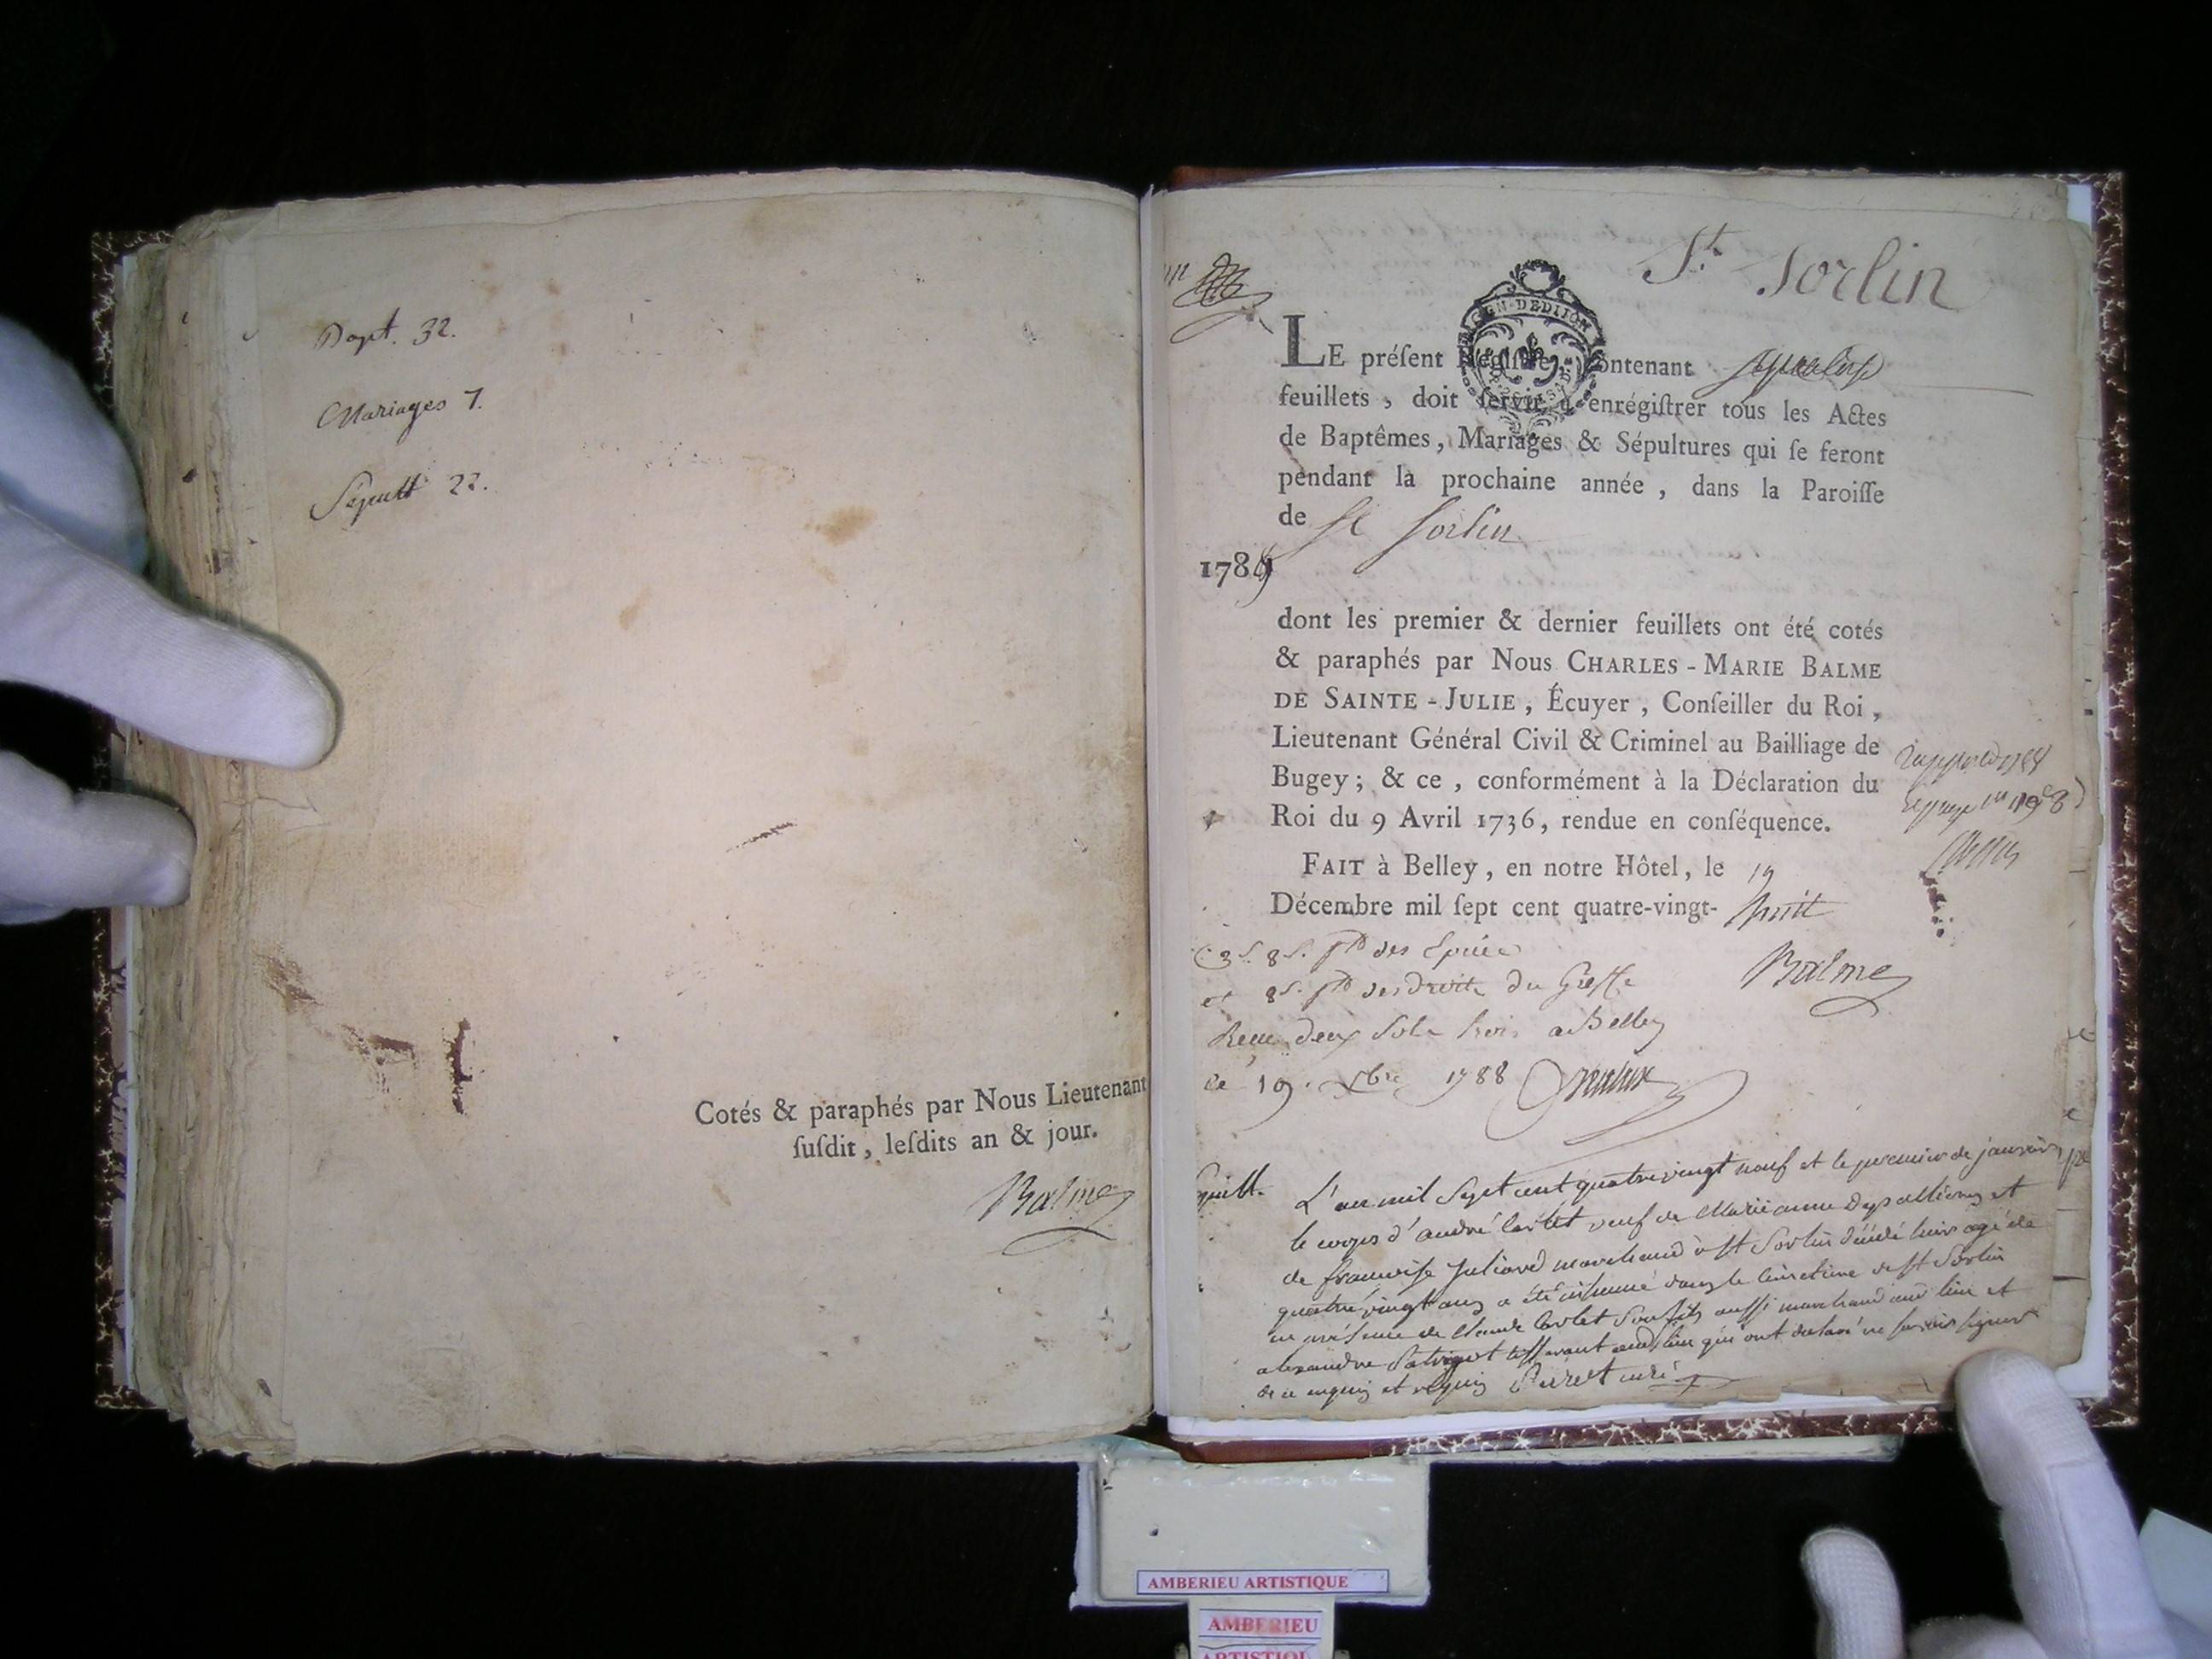 Bapt. 32.
Mariages 7.
Sépult 22.
Cotés & paraphés par Nous Lieutenant
ſuſdit, leſdits an & jour.
Balme
St. Sorlin
GEN·DE DIJON
LE préſent Regiſtre contenant
feuillets, doit ſervir à enrégiſtrer tous les Actes
de Baptêmes, Mariages & Sépultures qui ſe feront
pendant la prochaine année, dans la Paroiſſe
de St Sorlin
1789
dont les premier & dernier feuillets ont été cotés
& paraphés par Nous CHARLES-MARIE BALME
DE SAINTE-JULIE, Écuyer, Conſeiller du Roi,
Lieutenant Général Civil & Criminel au Bailliage de
Bugey; & ce, conformément à la Déclaration du
Roi du 9 Avril 1736, rendue en conſéquence.
FAIT à Belley, en notre Hôtel, le 19
Décembre mil ſept cent quatre-vingt-huit
Balme
des droits du Greffe
deux sols trois a Belley
le 19. xbre 1788
L'an mil Sept cent quatrevingt neuf et le premier de janvier
le corps d'andré Cortet veuf de Marie anne et
de françoise Juliard marchand à St Sorlin décédé hier agé de
quatre vingt ans a été inhumé dans le cimetiere de St Sorlin
en présence de Claude Cortet son fils aussi marchand aud lieu et
alexandre tisserant aud lieu qui ont déclaré ne savoir signer
de ce enquis et requis Perret curé
AMBERIEU ARTISTIQUE
AMBERIEU
ARTISTIQUE